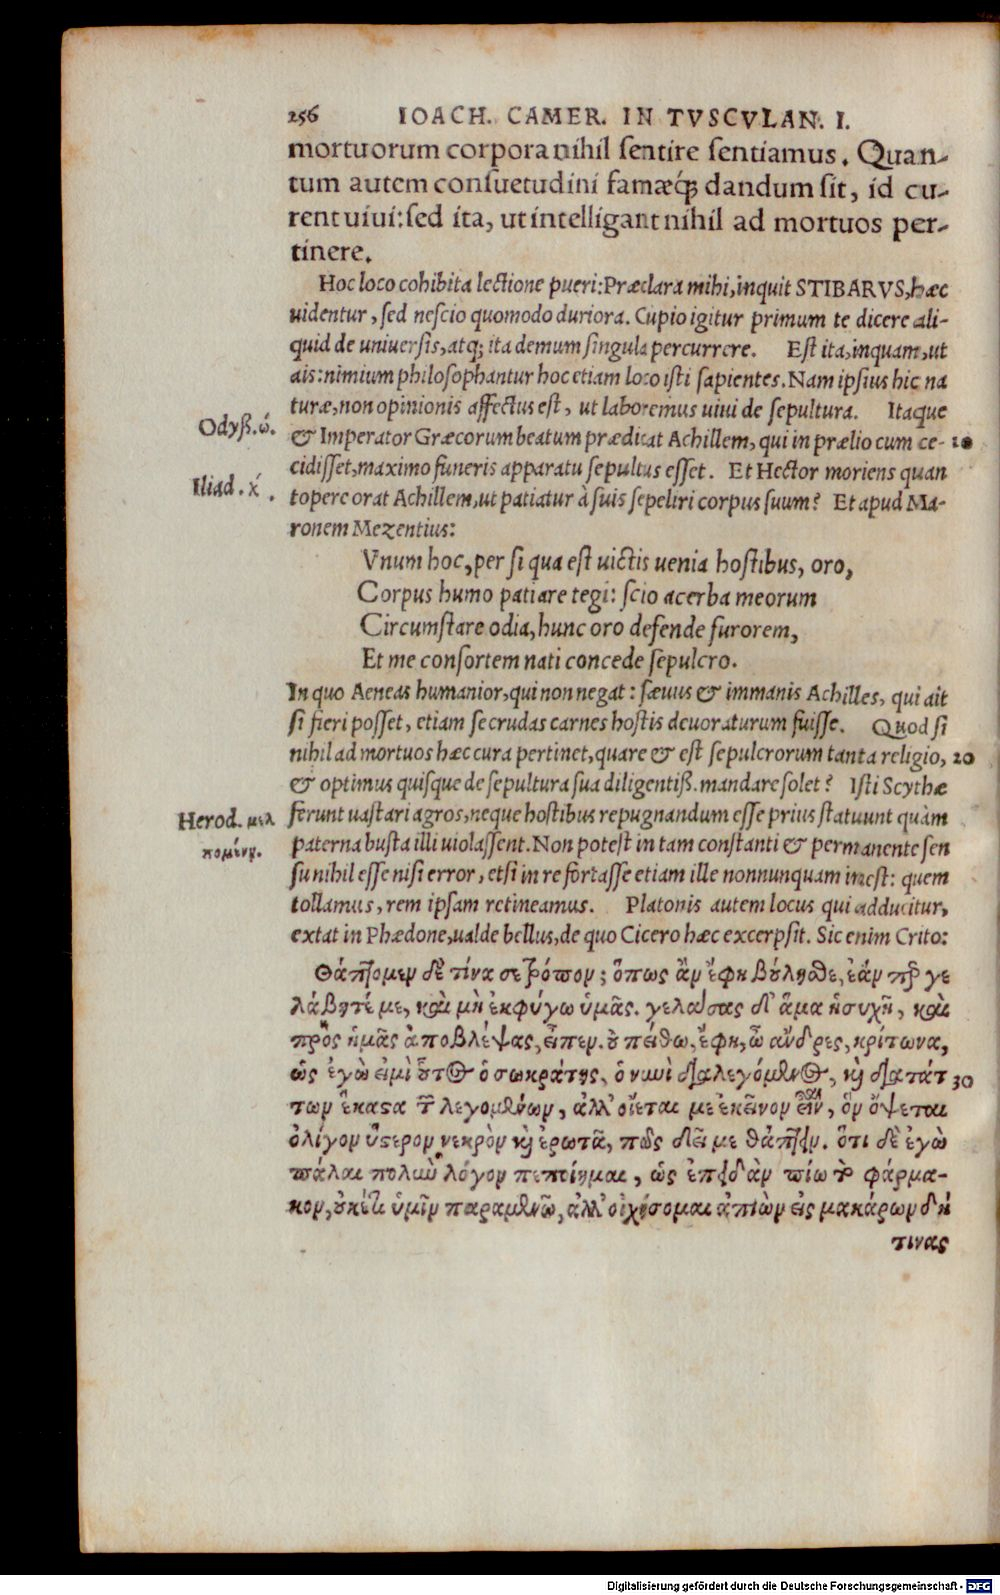 256 IOACH. CAMER. IN TVSCVLAN. I.
mortuorum corpora nihil sentire sentiamus. Quan-
tum autem consuetudini famæq́; dandum sit, id cu-
rent uiui: sed ita, ut intelligant nihil ad mortuos per-
tinere.
Hoc loco cohibita lectione pueri: Præclara mihi, inquit STIBARVS, hæc
uidentur, sed nescio quomodo duriora. Cupio igitur primum te dicere ali-
quid de uniuersis, atq; ita demum singula percurrere. Est ita, inquam, ut
ais: nimium philosophantur hoc etiam loco isti sapientes. Nam ipsius hic na
turæ, non opinionis affectus est, ut laboremus uiui de sepultura. Itaque
Odyß. ώ.
& Imperator Græcorum beatum prædicat Achillem, qui in prælio cum ce- 10
cidisset, maximo funeris apparatu sepultus esset. Et Hector moriens quan
Iliad. χ́.
topere orat Achillem, ut patiatur à suis sepeliri corpus suum? Et apud Ma-
ronem Mezentius:
Vnum hoc, per si qua est uictis uenia hostibus, oro,
Corpus humo patiare tegi: scio acerba meorum
Circumstare odia, hunc oro defende furorem,
Et me consortem nati concede sepulcro.
In quo Aeneas humanior, qui non negat: sæuus & immanis Achilles, qui ait
si fieri posset, etiam se crudas carnes hostis deuoraturum fuisse. Quod si
nihil ad mortuos hæc cura pertinet, quare & est sepulcrorum tanta religio, 20
& optimus quisque de sepultura sua diligentiß. mandare solet? Isti Scythæ
Herod. μελ
πομένῃ.
ferunt uastari agros, neque hostibus repugnandum esse prius statuunt quàm
paterna busta illi uiolassent. Non potest in tam constanti & permanente sen
su nihil esse nisi error, etsi in re fortasse etiam ille nonnunquam inest: quem
tollamus, rem ipsam retineamus. Platonis autem locus qui adducitur,
extat in Phædone, ualde bellus, de quo Cicero hæc excerpsit. Sic enim Crito:
Θάπτομεν δὲ τίνα σε τρόπον; ὅπως ἂν ἔφη βούλησθε, ἐάν πέρ γε
λάβητέ με, καὶ μὴ ἐκφύγω ὑμᾶς. γελάσας δ' ἅμα ἡσυχῆ, καὶ
πρὸς ἡμᾶς ἀποβλέψας, εἶπεν. οὐ πείθω, ἔφη, ὦ ἄνδρες, κρίτωνα,
ὡς ἐγὼ εἰμὶ οὗτος ὁ σωκράτης, ὁ νυνὶ διαλεγόμενος, καὶ διατάτ 30
των ἕκαστα τῶν λεγομένων, ἀλλ' οἴεται με ἐκεῖνον εἶναι, ὃν ὄψεται
ὀλίγον ὕστερον νεκρὸν καὶ ἐρωτᾷ, πῶς δεῖ με θάπτειν. ὅτι δὲ ἐγὼ
πάλαι πολὺν λόγον πεποίημαι, ὡς ἐπειδὰν πίω τὸ φάρμα-
κον, οὐκέτι ὑμῖν παραμενῶ, ἀλλ' οἰχήσομαι ἀπιὼν εἰς μακάρων δή
τινας
Digitalisierung gefördert durch die Deutsche Forschungsgemeinschaft - DFG